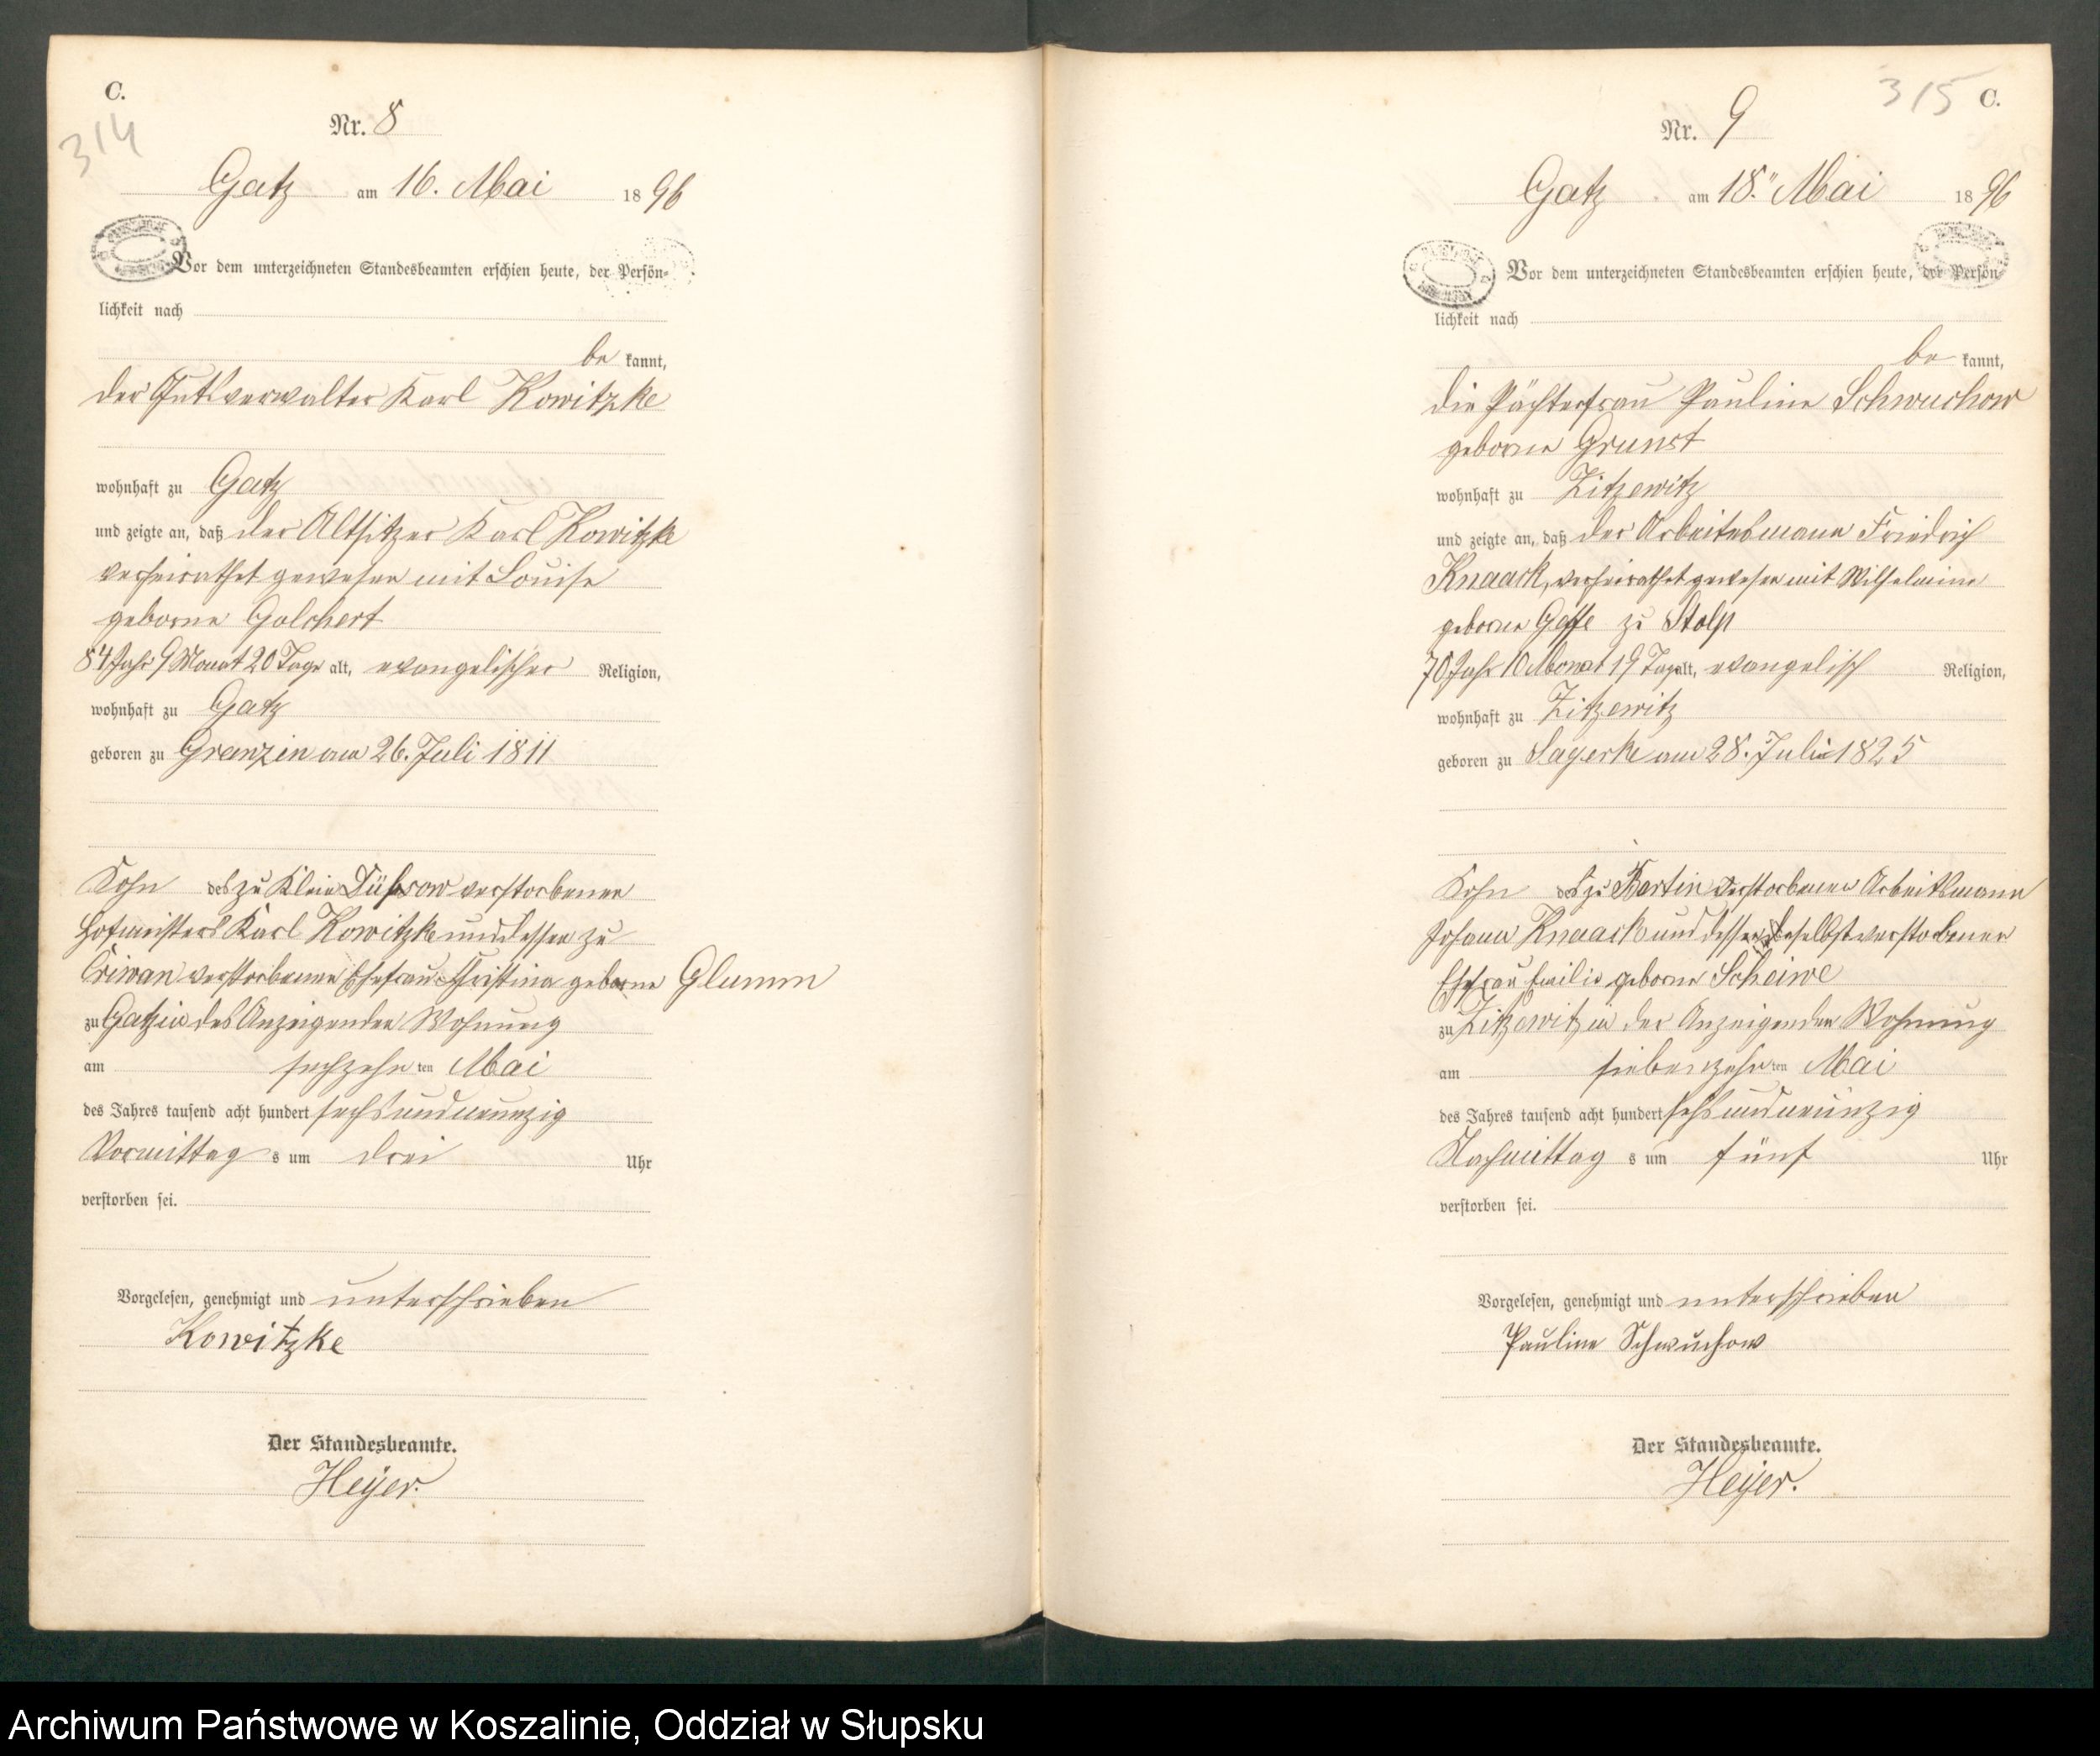 C.
314
Nr. 8
Gatz am 16. Mai 1896
Vor dem unterzeichneten Standesbeamten erschien heute, der Persön-
lichkeit nach
be kannt,
der Gutsverwalter Karl Kowitzke
wohnhaft zu Gatz
und zeigte an, daß der Altsitzer Karl Kowitzke
verheirathet gewesen mit Louise
geborne Golchert
84 Jahr 9 Monat 20 Tage alt, evangelischer Religion,
wohnhaft zu Gatz
geboren zu Granzin am 26. Juli 1811
Sohn des zu Klein Düsow verstorbenen
Hofmeisters Karl Kowitzke und dessen zu
Criwan verstorbenen Ehefrau Christine geborne Glumm
zu Gatz in des Anzeigenden Wohnung
am sechzehn ten Mai
des Jahres tausend acht hundert sechsundneunzig
Vormittag s um drei Uhr
verstorben sei.
Vorgelesen, genehmigt und unterschrieben
Kowitzke
Der Standesbeamte.
Heyer.
315 C.
Nr. 9
Gatz am 18. Mai 1896
Vor dem unterzeichneten Standesbeamten erschien heute, der Persön-
lichkeit nach
be kannt,
die Pächterfrau Pauline Schwuchow
geborne Grunst
wohnhaft zu Zitzewitz
und zeigte an, daß der Arbeitsmann Friedrich
Knaack, verheirathet gewesen mit Wilhelmine
geborne zu Stolp
70 Jahr 10 Monat 19 Tage alt, evangelisch Religion,
wohnhaft zu Zitzewitz
geboren zu Sagerke am 28. Juli 1825
Sohn des zu Bartin verstorbenen Arbeitsmann
Johann Knaack und dessen daselbst verstorbenen
Ehefrau Emilie geborne Scheiwe
zu Zitzewitz in der Anzeigenden Wohnung
am siebenzehn ten Mai
des Jahres tausend acht hundert sechsundneunzig
Nachmittag s um fünf Uhr
verstorben sei.
Vorgelesen, genehmigt und unterschrieben
Pauline Schwuchow
Der Standesbeamte.
Heyer.
Archiwum Państwowe w Koszalinie, Oddział w Słupsku